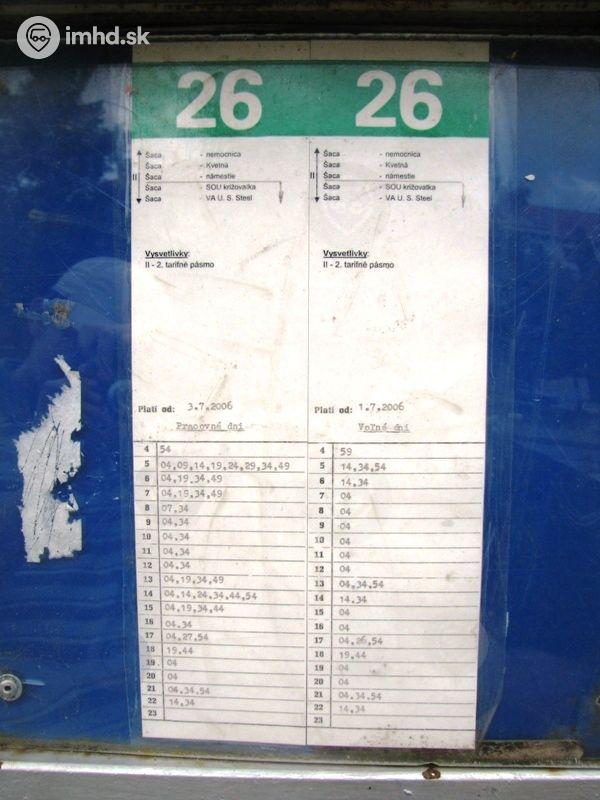 imhd.sk
26 26
Šaca - nemocnica
Šaca - Kvetná
II Šaca - námestie
Šaca - SOU križovatka
Šaca - VA U. S. Steel
Vysvetlivky:
II - 2. tarifné pásmo
Platí od: 3.7.2006
Pracovné dni
4 54
5 04,09,14,19,24,29,34,49
6 04,19,34,49
7 04,19,34,49
8 07,34
9 04,34
10 04,34
11 04,34
12 04,34
13 04,19,34,49
14 04,14,24,34,44,54
15 04,19,34,44
16 04,34
17 04,27,54
18 19,44
19 04
20 04
21 04,34,54
22 14,34
23
Šaca - nemocnica
Šaca - Kvetná
II Šaca - námestie
Šaca - SOU križovatka
Šaca - VA U. S. Steel
Vysvetlivky:
II - 2. tarifné pásmo
Platí od: 1.7.2006
Voľné dni
4 59
5 14,34,54
6 14,34
7 04
8 04
9 04
10 04
11 04
12 04
13 04,34,54
14 14,34
15 04
16 04
17 04,26,54
18 19,44
19 04
20 04
21 04,34,54
22 14,34
23